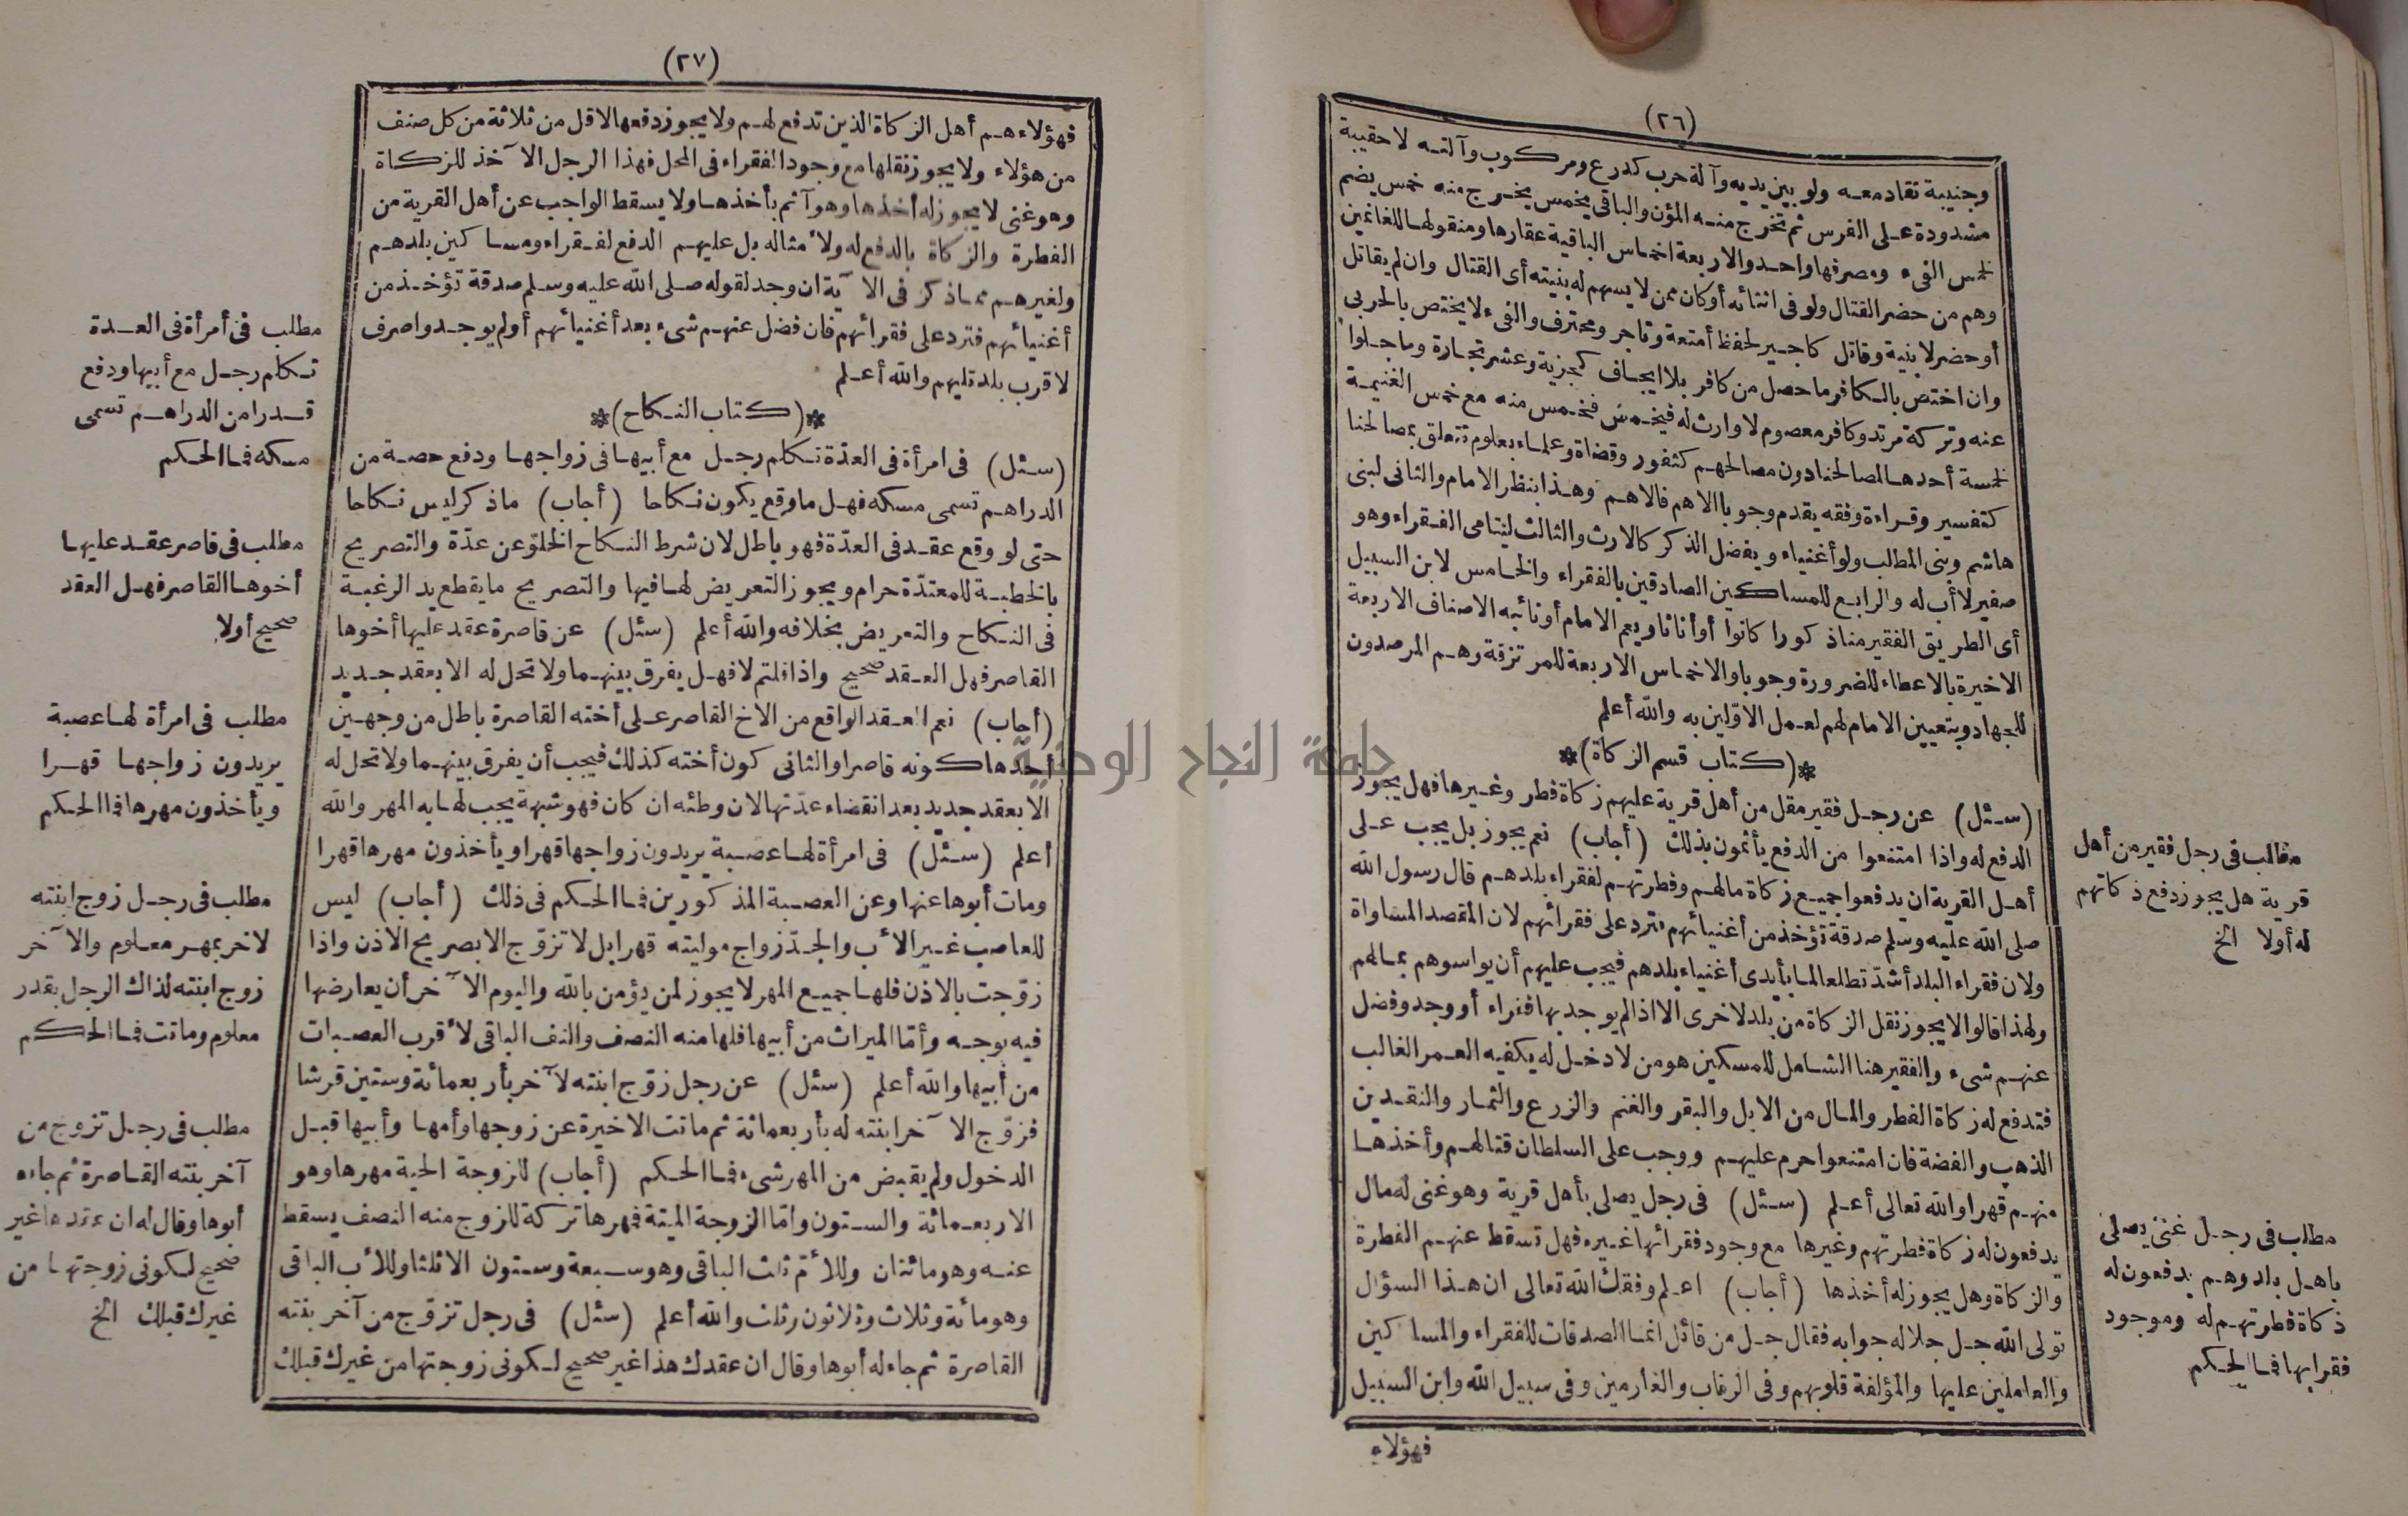 (٢٦)
وجنيبة تقاد معه ولو بين يديه وآلة حرب كدرع ومركوب وآلته لا حقيبة
مشدودة على الفرس ثم تخرج منه المؤن والباقي يخمس يخرج منه خمس يضم
لخمس الفىء ومصرفها واحد والاربعة اخماس الباقية عقارها ومنقولها للغانمين
وهم من حضر القتال ولو فى اثنائه أو كان ممن لا يسهم له بنيته أى القتال وان لم يقاتل
أو حضر لا بنية وقاتل كاجير لحفظ أمتعة وتاجر ومحترف والفىء لا يختص بالحربى
وان اختص بالكافر ما حصل من كافر بلا ايجاف كجزية وعشر تجارة وما جلوا
عنه وتركة مرتد وكافر معصوم لا وارث له فيخمس فخمس منه مع خمس الغنيمة
لخمسة أحدها لمصالحنا دون مصالحهم كثغور وقضاة وعلماء بعلوم تتعلق بمصالحنا
كتفسير وقراءة وفقه يقدم وجوبا الاهم فالاهم وهذا بنظر الامام والثانى لبنى
هاشم وبنى المطلب ولو أغنياء ويفضل الذكر كالارث والثالث ليتامى الفقراء وهو
صغير لا أب له والرابع للمساكين الصادقين بالفقراء والخامس لابن السبيل
أى الطريق الفقير منا ذكورا كانوا أو أناثا ويعم الامام أو نائبه الاصناف الاربعة
الاخيرة بالاعطاء للضرورة وجوبا والاخماس الاربعة للمرتزقة وهم المرصدون
للجهاد وبتعيين الامام لهم لعمل الاوّلين به والله أعلم
*(كتاب قسم الزكاة)*
(سئل) عن رجل فقير مقل من أهل قرية عليهم زكاة فطر وغيرها فهل يجوز
الدفع له واذا امتنعوا من الدفع يأثمون بذلك (أجاب) نعم يجوز بل يجب على
أهل القرية ان يدفعوا جميع زكاة مالهم وفطرتهم لفقراء بلدهم قال رسول الله
صلى الله عليه وسلم صدقة تؤخذ من أغنيائهم فترد على فقرائهم لان المقصد المساواة
ولان فقراء البلد أشدّ تطلعا لما بأيدى أغنياء بلدهم فيجب عليهم أن يواسوهم بمالهم
ولهذا قالوا لا يجوز نقل الزكاة من بلد لاخرى الا اذا لم يوجد بها فقراء أو وجد وفضل
عنهم شىء والفقير هنا الشامل للمسكين هو من لا دخل له يكفيه العمر الغالب
فتدفع له زكاة الفطر والمال من الابل والبقر والغنم والزرع والثمار والنقدين
الذهب والفضة فان امتنعوا حرم عليهم ووجب على السلطان قتالهم وأخذها
منهم قهرا والله تعالى أعلم (سئل) فى رجل يصلى بأهل قرية وهو غنى له مال
يدفعون له زكاة فطرتهم وغيرها مع وجود فقرائها غيره فهل تسقط عنهم الفطرة
والزكاة وهل يجوز له أخذها (أجاب) اعلم وفقك الله تعالى ان هذا السؤال
تولى الله جل جلاله جوابه فقال جل من قائل انما الصدقات للفقراء والمساكين
والعاملين عليها والمؤلفة قلوبهم وفى الرقاب والغارمين وفى سبيل الله وابن السبيل
فهؤلاء
مطلب فى رجل فقير من أهل
قرية هل يجوز دفع ذكاتهم
له أولا الخ
مطلب فى رجل غنى يصلى
باهل بلد وهم يدفعون له
ذكاة فطرتهم له وموجود
فقرابها فما الحكم
(٢٧)
فهؤلاء هم أهل الزكاة الذين تدفع لهم ولا يجوز دفعها لاقل من ثلاثة من كل صنف
من هؤلاء ولا يجوز نقلها مع وجود الفقراء فى المحل فهذا الرجل الآخذ للزكاة
وهو غنى لا يجوز له أخذها وهو آثم بأخذها ولا يسقط الواجب عن أهل القرية من
الفطرة والزكاة بالدفع له ولأمثاله بل عليهم الدفع لفقراء ومساكين بلدهم
ولغيرهم مما ذكر فى الآية ان وجد لقوله صلى الله عليه وسلم صدقة تؤخذ من
أغنيائهم فترد على فقرائهم فان فضل عنهم شىء بعد أغنيائهم أولم يوجدوا صرف
لاقرب بلد تليهم والله أعلم
*(كتاب النكاح)*
(سئل) فى امرأة فى العدّة تكلم رجل مع أبيها فى زواجها ودفع حصة من
الدراهم تسمى مسكه فهل ما وقع يكون نكاحا (أجاب) ما ذكر ليس نكاحا
حتى لو وقع عقد فى العدّة فهو باطل لان شرط النكاح الخلوّ عن عدّة والتصريح
بالخطبة للمعتدّة حرام ويجوز التعريض لها فيها والتصريح ما يقطع يد الرغبة
فى النكاح والتعريض بخلافه والله أعلم (سئل) عن قاصرة عقد عليها أخوها
القاصر فهل العقد صحيح واذا قلتم لا فهل يفرق بينهما ولا تحل له الا بعقد جديد
(أجاب) نعم العقد الواقع من الاخ القاصر على أخته القاصرة باطل من وجهين
أحدها كونه قاصرا والثانى كون أخته كذلك فيجب أن يفرق بينهما ولا تحل له
الا بعقد جديد بعد انقضاء عدّتها لان وطئه ان كان فهو شبهة يجب لها به المهر والله
أعلم (سئل) فى امرأة لها عصبة يريدون زواجها قهرا ويأخذون مهرها قهرا
ومات أبوها عنها وعن العصبة المذكورين فما الحكم فى ذلك (أجاب) ليس
للعاصب غير الأب والجدّ زواج موليته قهرا بل لا تزوّج الا بصريح الاذن واذا
زوّجت بالاذن فلها جميع المهر لا يجوز لمن يؤمن بالله واليوم الآخر أن يعارضها
فيه بوجه وأمّا الميراث من أبيها فلها منه النصف والنف الباقى لأقرب العصبات
من أبيها والله أعلم (سئل) عن رجل زوّج ابنته لآخر بأربعمائة وستين قرشا
فزوّج الآخر ابنته له بأربعمائة ثم ماتت الاخيرة عن زوجها وأمها وأبيها قبل
الدخول ولم يقبض من المهر شىء فما الحكم (أجاب) للزوجة الحية مهرها وهو
الاربعمائة والستون وامّا الزوجة الميتة فمهرها تركة للزوج منه النصف يسقط
عنه وهو مائتان وللأمّ ثلث الباقى وهو سبعة وستون الا ثلثا وللأب الباقى
وهو مائة وثلاث وثلاثون وثلث والله أعلم (سئل) فى رجل تزوّج من آخر بنته
القاصرة ثم جاءله أبوها وقال ان عقدك هذا غير صحيح لكونى زوجتها من غيرك قبلك
مطلب فى أمرأة فى العدة
تكلم رجل مع أبيها ودفع
قدرا من الدراهم تسمى
مسكه فما الحكم
مطلب فى قاصر عقد عليها
أخوها القاصر فهل العقد
صحيح أولا
مطلب فى امرأة لها عصبة
يريدون زواجها قهرا
ويأخذون مهرها فما الحكم
مطلب فى رجل زوج ابنته
لاخر بمهر معلوم والآخر
زوج ابنته لذاك الرجل بقدر
معلوم وماتت فما الحكم
مطلب فى رجل تزوج من
آخر بنته القاصرة ثم جاءه
أبوها وقال له ان عقدها غير
صحيح لكونى زوجتها من
غيرك قبلك الخ
جامعة النجاح الوطنية